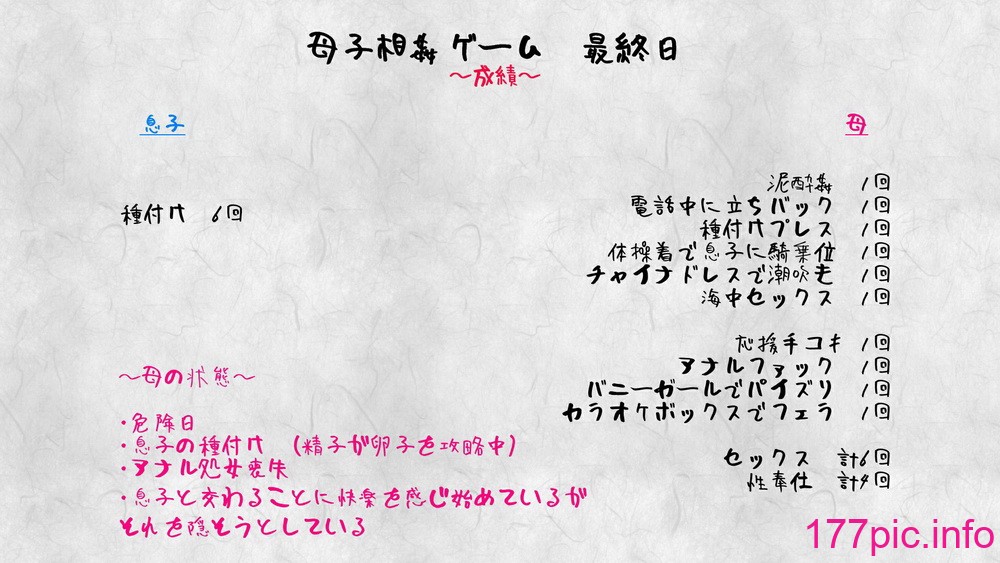 母子相姦ゲーム 最終日
～成績～
息子
母
種付け 6回
泥酔姦 1回
電話中に立ちバック 1回
種付けプレス 1回
体操着で息子に騎乗位 1回
チャイナドレスで潮吹き 1回
海中セックス 1回
応援手コキ 1回
アナルファック 1回
バニーガールでパイズリ 1回
カラオケボックスでフェラ 1回
セックス 計6回
性奉仕 計4回
～母の状態～
・危険日
・息子の種付け (精子が卵子を攻略中)
・アナル処女喪失
・息子と交わることに快楽を感じ始めているが
それを隠そうとしている
177pic.info